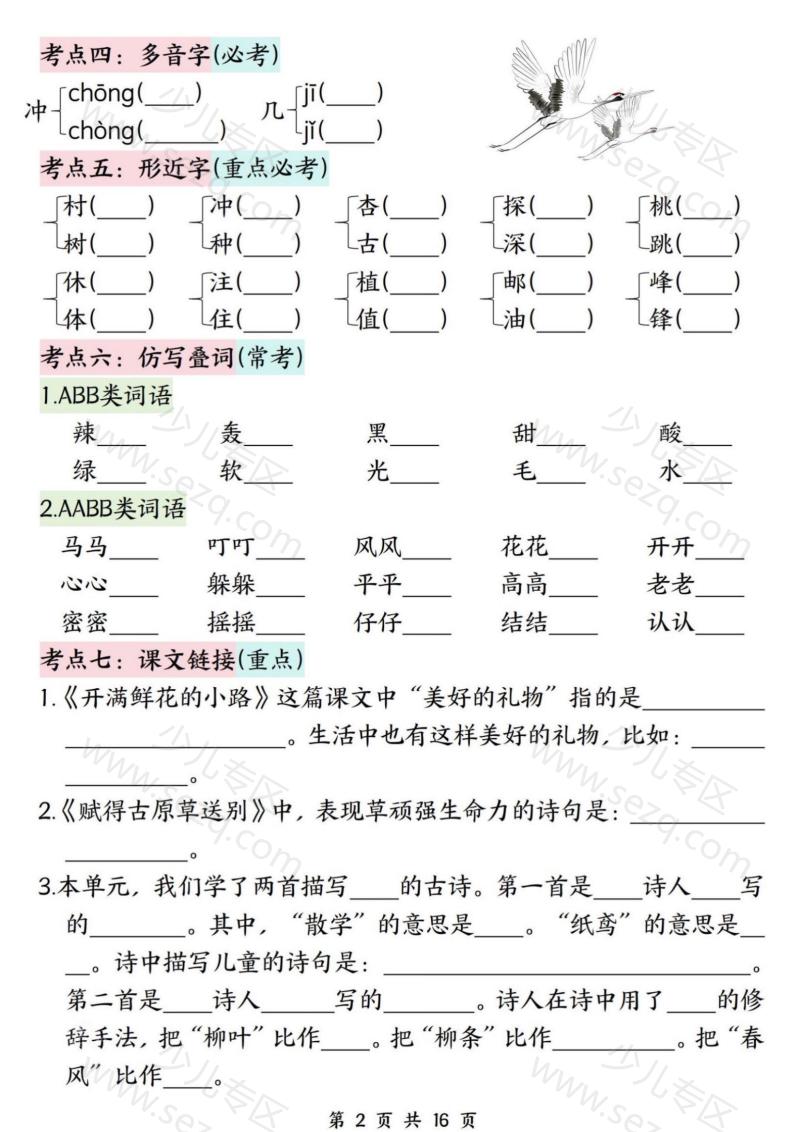 考点四：多音字(必考)
冲 chōng(____) chòng(______) 几 jī(____) jǐ(____)
考点五：形近字(重点必考)
村(____) 冲(____) 杏(____) 探(____) 桃(____)
树(____) 种(____) 古(____) 深(____) 跳(____)
休(____) 注(____) 植(____) 邮(____) 峰(____)
体(____) 住(____) 值(____) 油(____) 锋(____)
考点六：仿写叠词(常考)
1.ABB类词语
辣____ 轰____ 黑____ 甜____ 酸____
绿____ 软____ 光____ 毛____ 水____
2.AABB类词语
马马____ 叮叮____ 风风____ 花花____ 开开____
心心____ 躲躲____ 平平____ 高高____ 老老____
密密____ 摇摇____ 仔仔____ 结结____ 认认____
考点七：课文链接(重点)
1.《开满鲜花的小路》这篇课文中“美好的礼物”指的是__________
__________________。生活中也有这样美好的礼物，比如：______
__________。
2.《赋得古原草送别》中，表现草顽强生命力的诗句是：___________
__________。
3.本单元，我们学了两首描写____的古诗。第一首是____诗人____写
的________。其中，“散学”的意思是____。“纸鸢”的意思是__
__。诗中描写儿童的诗句是：______________________________。
第二首是____诗人______写的________。诗人在诗中用了____的修
辞手法，把“柳叶”比作____。把“柳条”比作__________。把“春
风”比作____。
第 2 页 共 16 页
少儿专区
www.sezq.com
少儿专区
www.sezq.com
少儿专区
www.sezq.com
少儿专区
www.sezq.com
少儿专区
www.sezq.com
少儿专区
www.sezq.com
少儿专区
www.sezq.com
少儿专区
www.sezq.com